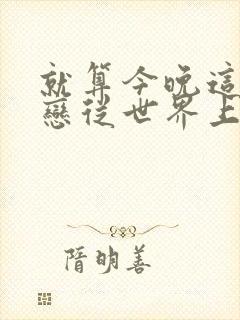 就算今晚這
戀從世界上
隋明善